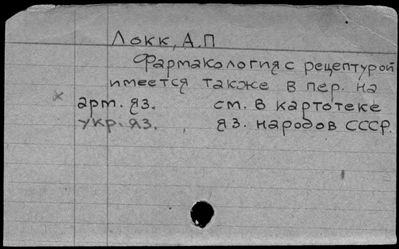 Локк, А.П
Фармакология с рецептурой
имеется также в пер. на
x арм. яз. см. в картотеке
укр. яз. яз. народов СССР.